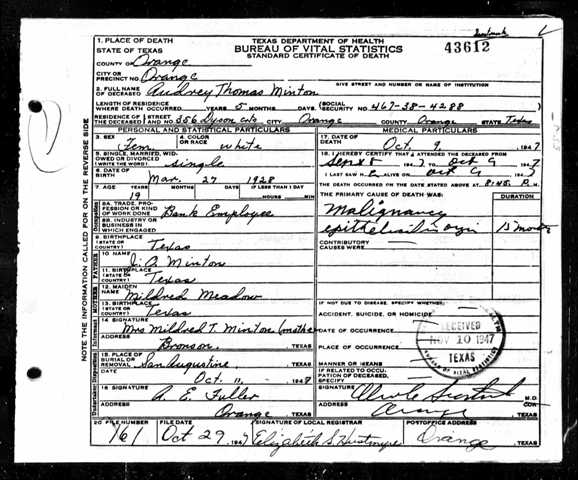 43612
1. PLACE OF DEATH
STATE OF TEXAS
TEXAS DEPARTMENT OF HEALTH
BUREAU OF VITAL STATISTICS
STANDARD CERTIFICATE OF DEATH
COUNTY OF Orange
CITY OR PRECINCT NO. Orange
GIVE STREET AND NUMBER OR NAME OF INSTITUTION
2. FULL NAME OF DECEASED Audrey Thomas Minton
LENGTH OF RESIDENCE WHERE DEATH OCCURRED YEARS 5 MONTHS DAYS (SOCIAL SECURITY NO. 467-38-4288
RESIDENCE OF THE DECEASED STREET AND NO. 356 Dyson CITY Orange COUNTY Orange STATE Texas
PERSONAL AND STATISTICAL PARTICULARS
MEDICAL PARTICULARS
3. SEX Fem
4. COLOR OR RACE white
17. DATE OF DEATH Oct. 9 1947
5. SINGLE, MARRIED, WIDOWED OR DIVORCED (WRITE THE WORD) single
18. I HEREBY CERTIFY THAT I ATTENDED THE DECEASED FROM Sept 8 TO Oct 9 1947
I LAST SAW H ALIVE ON Oct 9
6. DATE OF BIRTH Mar. 27 1928
THE DEATH OCCURRED ON THE DATE STATED ABOVE AT 8:45 P. M.
7. AGE YEARS 19 MONTHS DAYS IF LESS THAN 1 DAY HOURS MIN
THE PRIMARY CAUSE OF DEATH WAS: DURATION
8A. TRADE, PROFESSION OR KIND OF WORK DONE Bank Employee
Malignancy
8B. INDUSTRY OR BUSINESS IN WHICH ENGAGED
13 months
9. BIRTHPLACE (STATE OR COUNTRY) Texas
CONTRIBUTORY CAUSES WERE:
10. NAME J. A. Minton
11. BIRTHPLACE (STATE OR COUNTRY) Texas
12. MAIDEN NAME Mildred Meadow
IF NOT DUE TO DISEASE, SPECIFY WHETHER:
13. BIRTHPLACE (STATE OR COUNTRY) Texas
ACCIDENT, SUICIDE, OR HOMICIDE
14. SIGNATURE Mrs Mildred T. Minton (mother
DATE OF OCCURRENCE
ADDRESS Bronson, TEXAS
PLACE OF OCCURRENCE
RECEIVED
NOV 10 1947
TEXAS
OF VITAL STATISTICS
15. PLACE OF BURIAL OR REMOVAL San Augustine, TEXAS
MANNER OR MEANS
DATE Oct. 11, 1948
IF RELATED TO OCCUPATION OF DECEASED, SPECIFY
16. SIGNATURE A. E. Fuller
SIGNATURE M.D.
ADDRESS Orange TEXAS
ADDRESS Orange TEXAS
20. FILE NUMBER 161
FILE DATE Oct 29 1947
SIGNATURE OF LOCAL REGISTRAR
POSTOFFICE ADDRESS Orange, TEXAS
NOTE THE INFORMATION CALLED FOR ON THE REVERSE SIDE